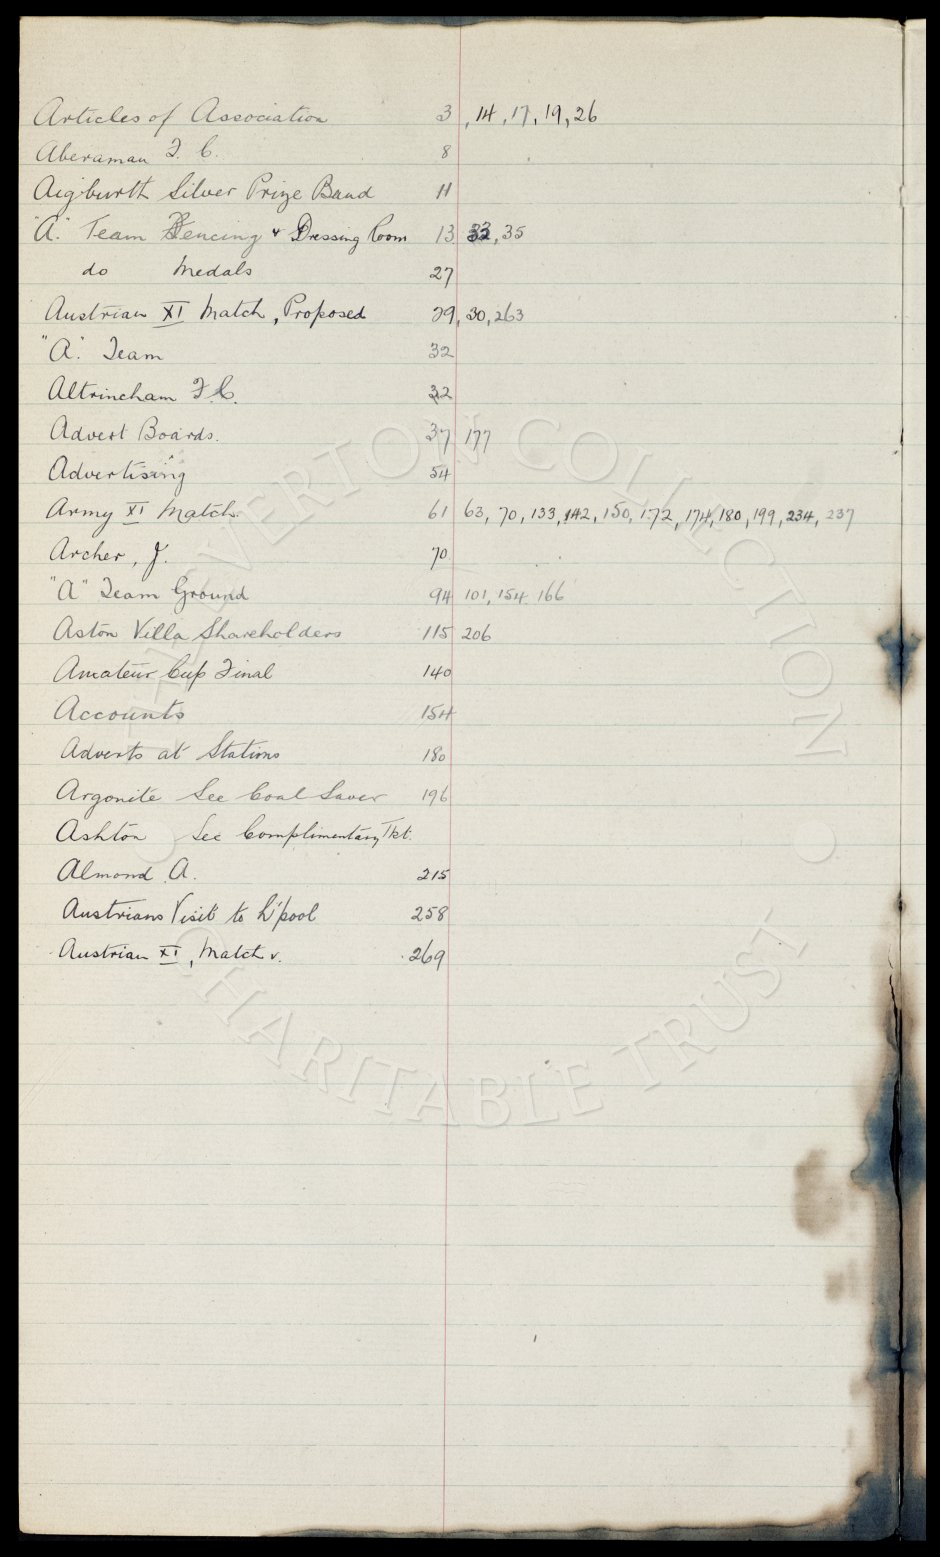 Articles of Association 3, 14, 17, 19, 26
Aberaman F. C. 8
Aigburth Silver Prize Band 11
"A." Team Fencing & Dressing Room 13 33, 35
do Medals 27
Austrian XI Match, Proposed 29, 30, 263
"A." Team 32
Altrincham F.C. 32
Advert Boards. 37 177
Advertising 54
Army XI Match. 61 63, 70, 133, 142, 150, 172, 174, 180, 199, 234, 237
Archer, J. 70
"A" Team Ground 94 101, 154 166
Aston Villa Shareholders 115 206
Amateur Cup Final 140
Accounts 154
Adverts at Stations 180
Argonite See Coal Saver 196
Ashton See Complimentary Tkt.
Almond A. 215
Austrians Visit to L'pool 258
Austrian XI, Match v. 269
THE EVERTON COLLECTION
CHARITABLE TRUST